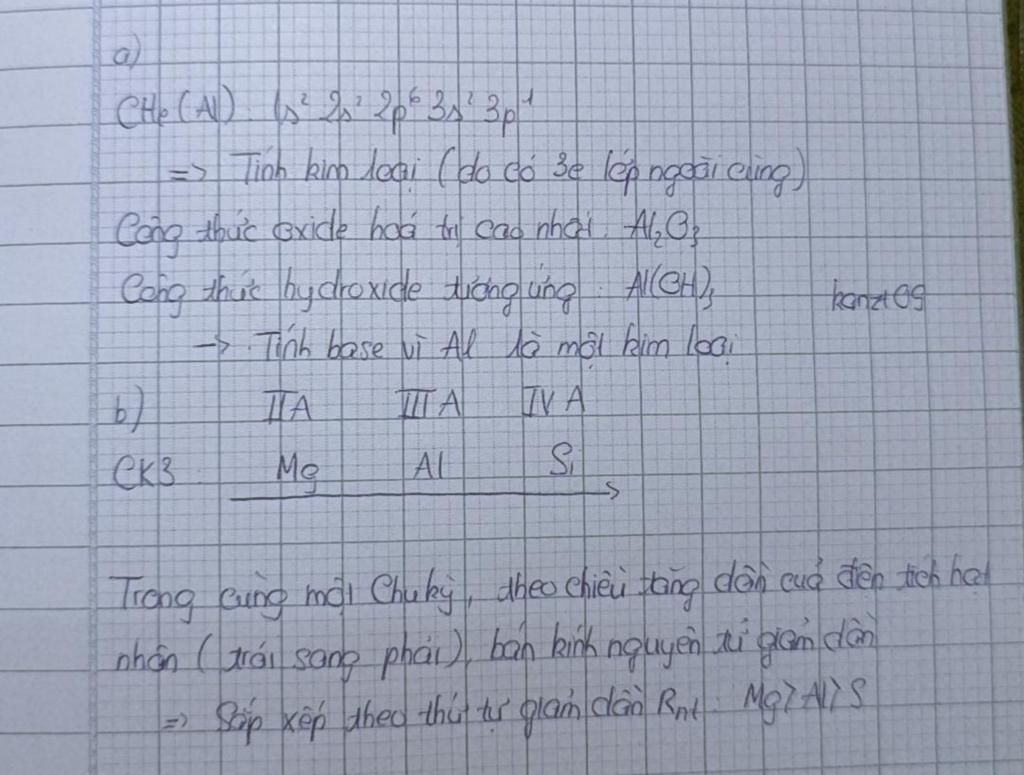 a)
CHe (Al): 1s² 2s² 2p⁶ 3s² 3p¹
=> Tính kim loại (do có 3e lớp ngoài cùng)
Công thức oxide hoá trị cao nhất: Al₂O₃
Công thức hydroxide tương ứng: Al(OH)₃
kanzt09
-> Tính base vì Al là một kim loại
b) IIA IIIA IVA
CK3 Mg Al Si
Trong cùng một chu kỳ, theo chiều tăng dần của điện tích hạt
nhân (trái sang phải), bán kính nguyên tử giảm dần
=> Sắp xếp theo thứ tự giảm dần Rnt: Mg>Al>S